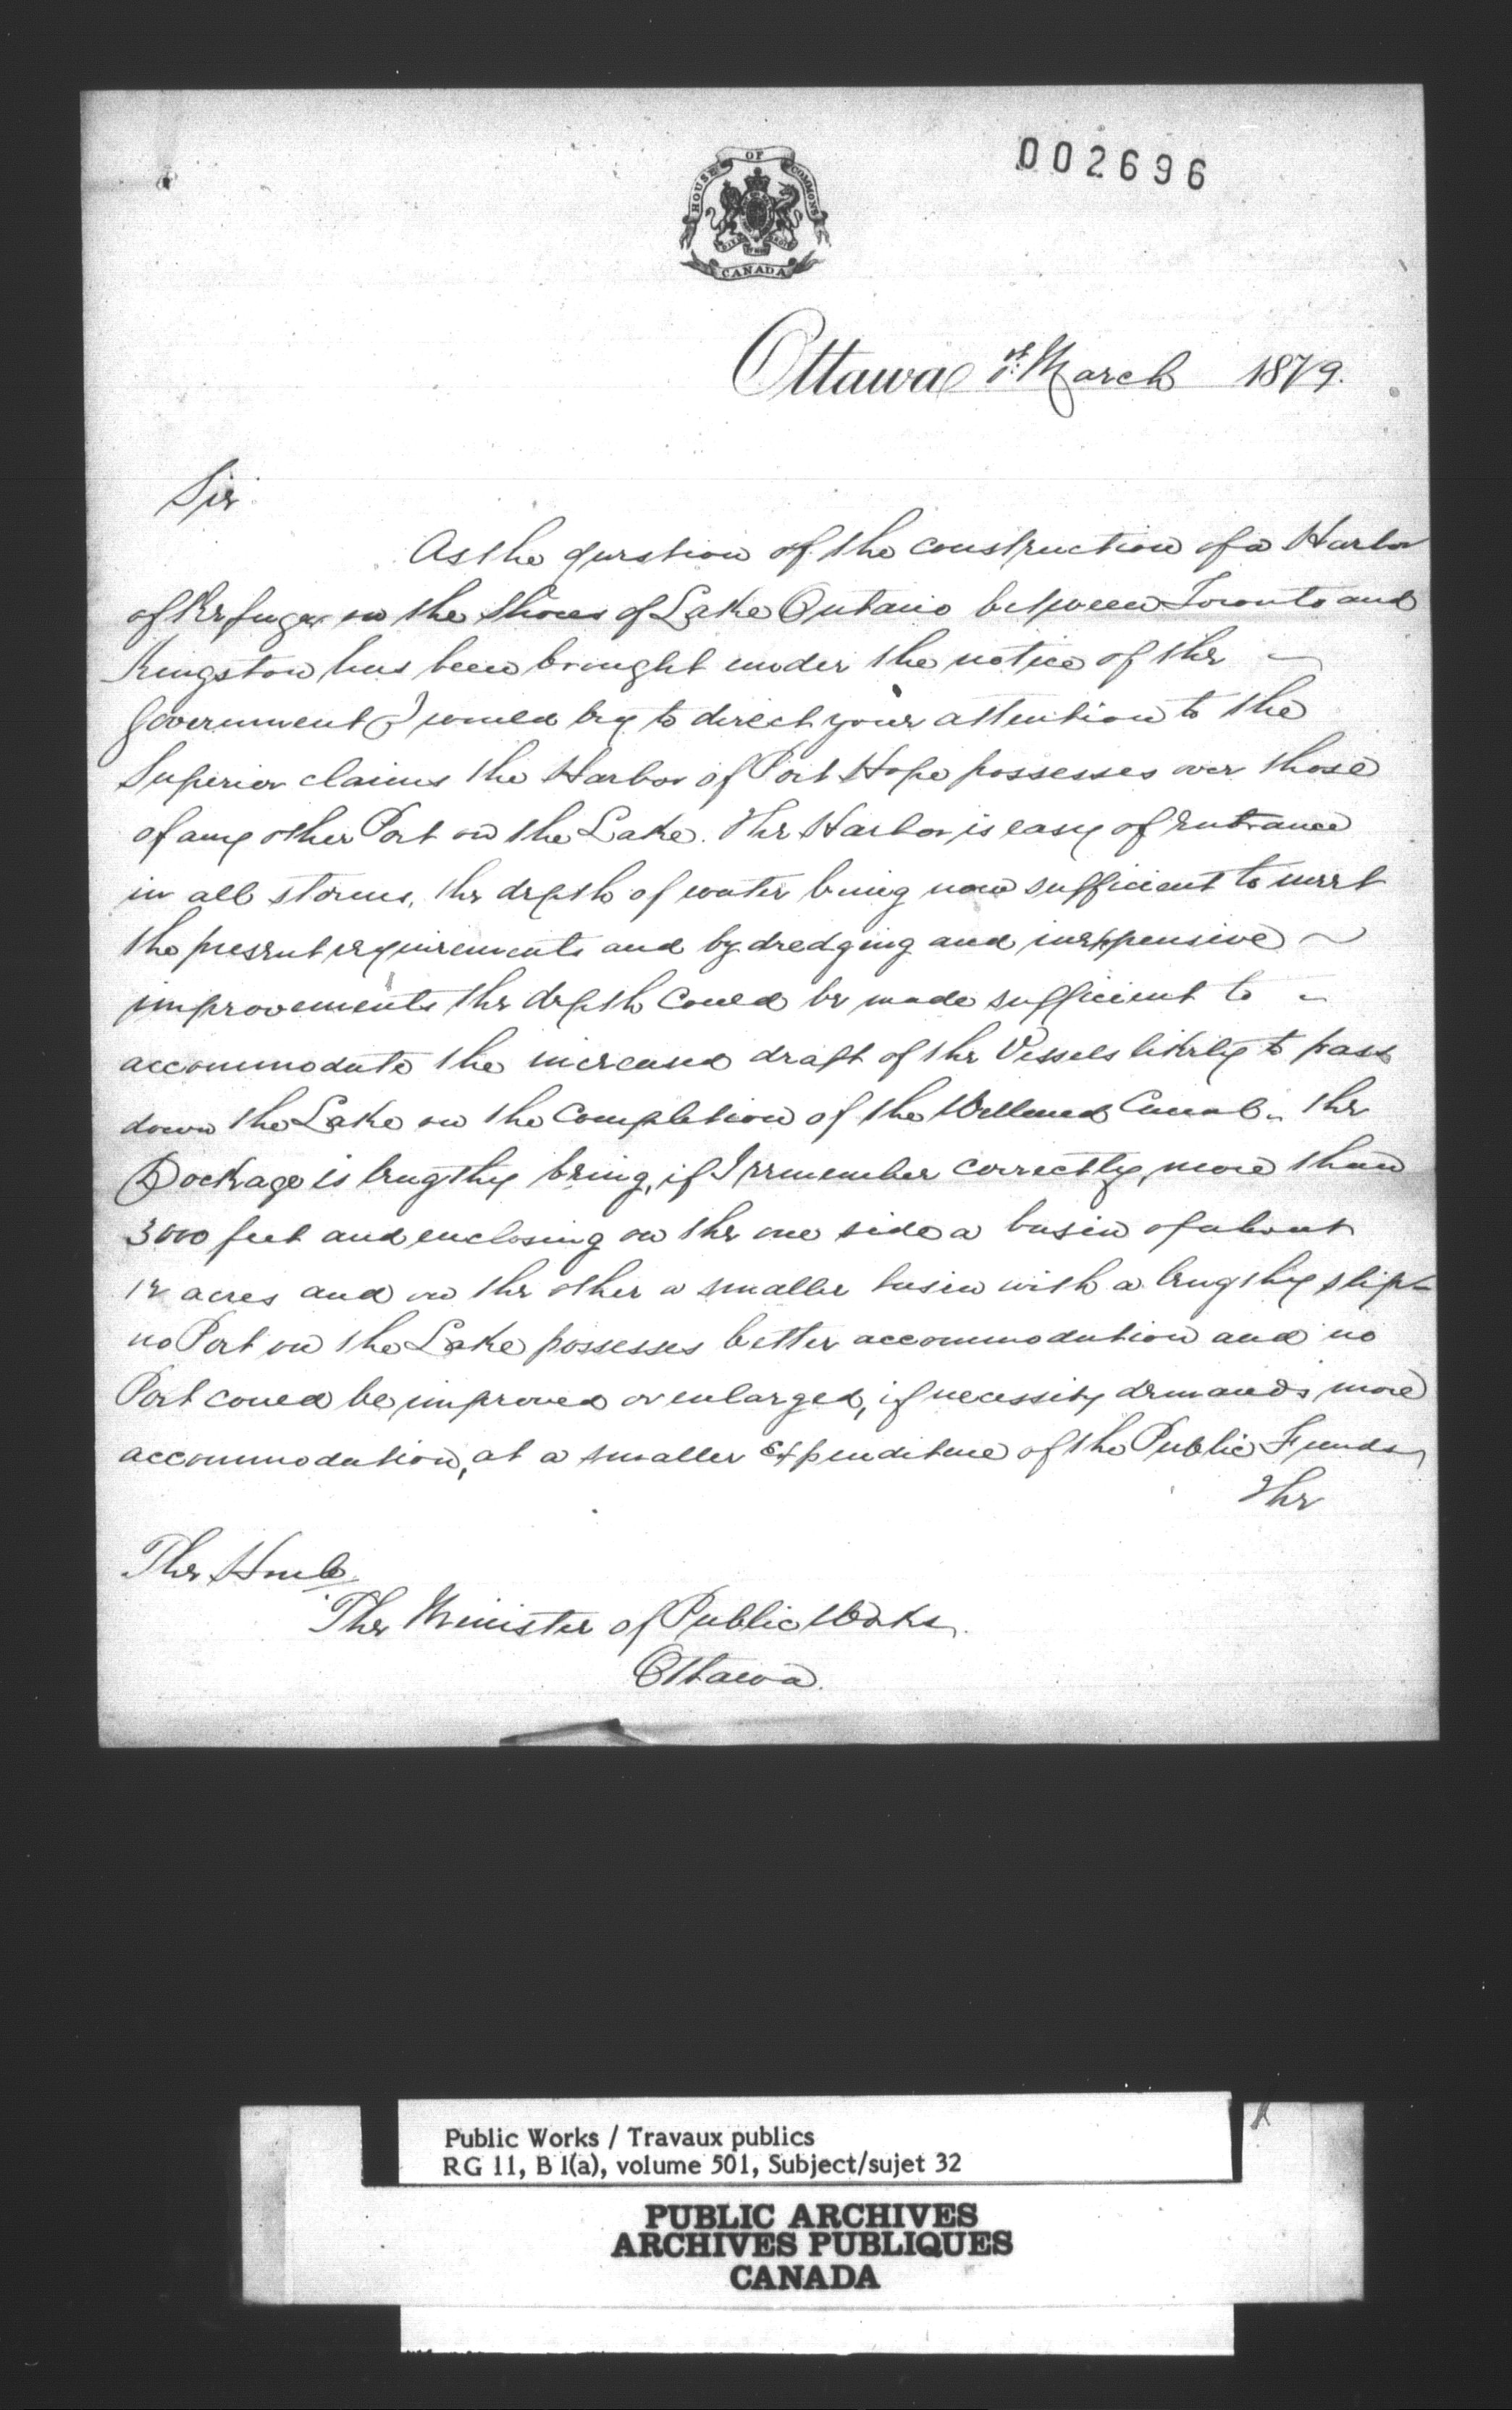 002696
HOUSE OF COMMONS
CANADA
Ottawa 1st March 1879.
Sir
As the question of the construction of a Harbor
of Refuge on the Shores of Lake Ontario between Toronto and
Kingston has been brought under the notice of the
Government I would beg to direct your attention to the
Superior claims the Harbor of Port Hope possesses over those
of any other Port on the Lake. The Harbor is easy of entrance
in all storms, the depth of water being now sufficient to meet
the present requirements and by dredging and inexpensive
improvements the depth could be made sufficient to
accommodate the increased draft of the Vessels likely to pass
down the Lake on the Completion of the Welland Canal. The
Dockage is lengthy being, if I remember correctly, more than
3000 feet and enclosing on the one side a basin of about
12 acres and on the other a smaller basin with a lengthy slip -
no Port on the Lake possesses better accommodation and no
Port could be improved or enlarged, if necessity demands more
accommodation, at a smaller expenditure of the Public Funds
The
The Honble
The Minister of Public Works.
Ottawa.
Public Works / Travaux publics
RG 11, B 1(a), volume 501, Subject/sujet 32
PUBLIC ARCHIVES
ARCHIVES PUBLIQUES
CANADA